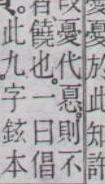 憂於此知許
改憂代恴則不
君饒也一曰倡
此九字鉉本